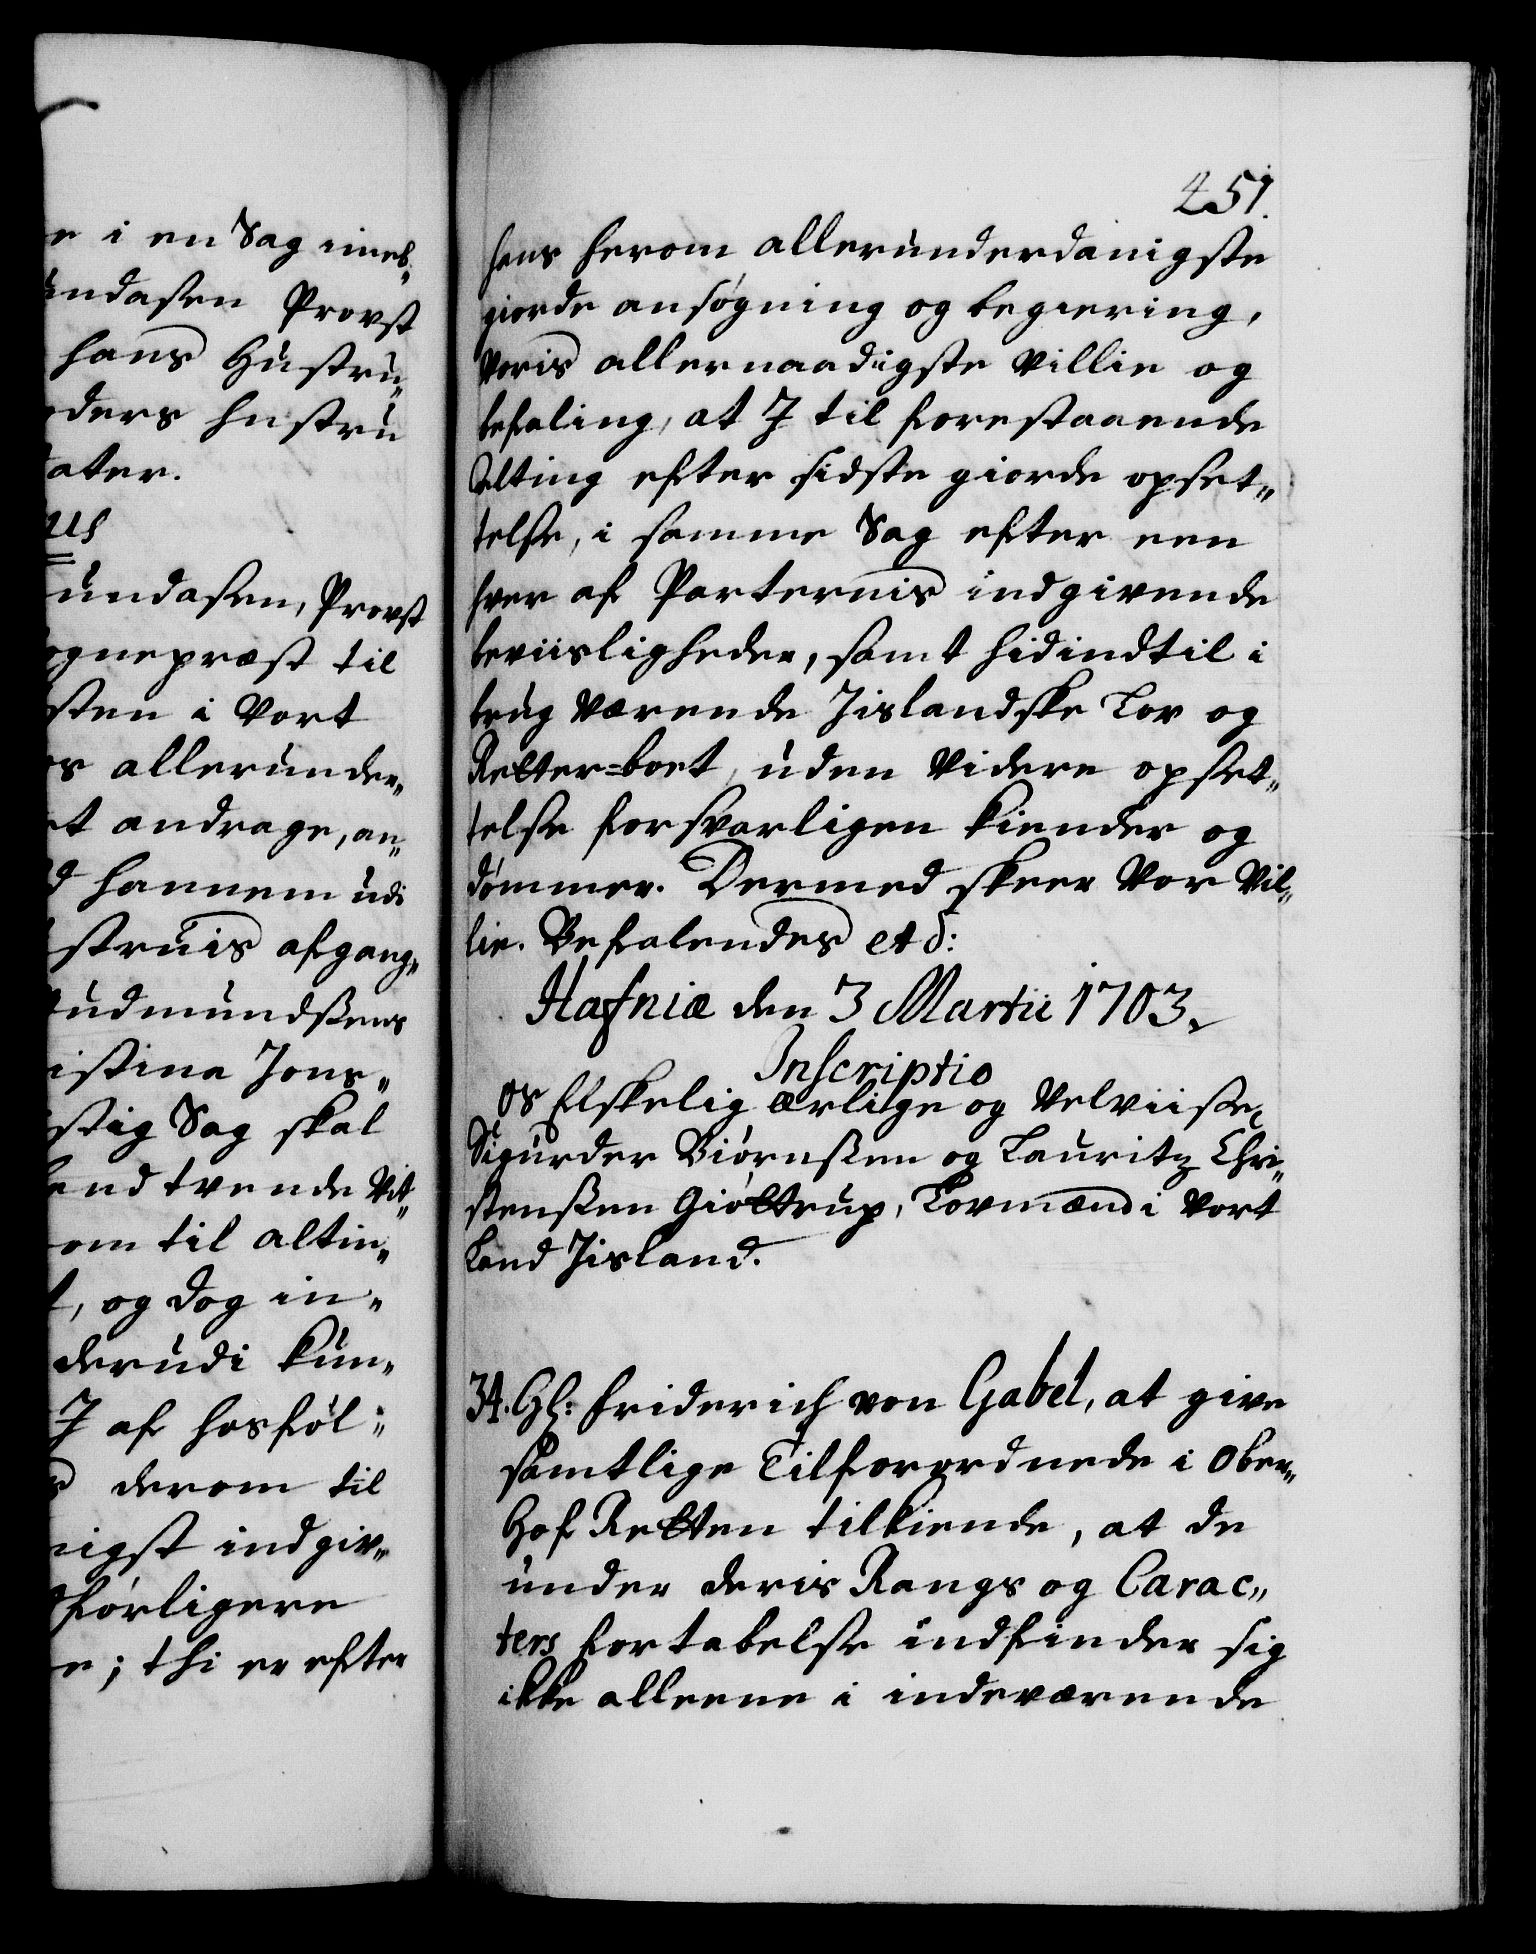 e i en Sag imel„
undasen Provst
hans Hustru„
ders hustru
ater.
us
undasen, Provst
ognepræst til
sten i Vort
os allerunder„
t andrage, an„
d hannem udi
struis afgang„
Gudmundßens
istina Jons„
stig Sag skal
end tvende Vit„
om til altin„
t, og dog in„
derudi kun„
J af hosføl„
derom til
nigst indgiv„
førligere
e; thi er efter
451.
hans herom allerunderdanigste
giorde ansøgning og begiering,
Voris allernaadigste Villie og
befaling, at J til forestaaende
Alting efter sidste giorde opset„
telse, i samme Sag efter een
hver af Parternis indgivende
beviisligheder, samt hidindtil i
brug værende Jislandske Lov og
Retter-boet, uden videre opset„
telse forsvarligen kiender og
dømmer. Dermed skeer Vor Vil„
lie. Befalendes etc:
Hafniæ den 3 Martii 1703.
Inscriptio
Os Elskelig ærlige og Velviise,
Sigurder Biørnßen og Lauritz Chri„
stenßen Giøttrup, Lovmænd i Vort
Land Jisland.
34. Hl: Friderich von Gabel, at give
samtlige Tilforordnede i Ober„
Hof Retten tilkiende, at de
under deris Rangs og Carac„
ters fortabelse indfinder sig
ikke alleene i indeværende